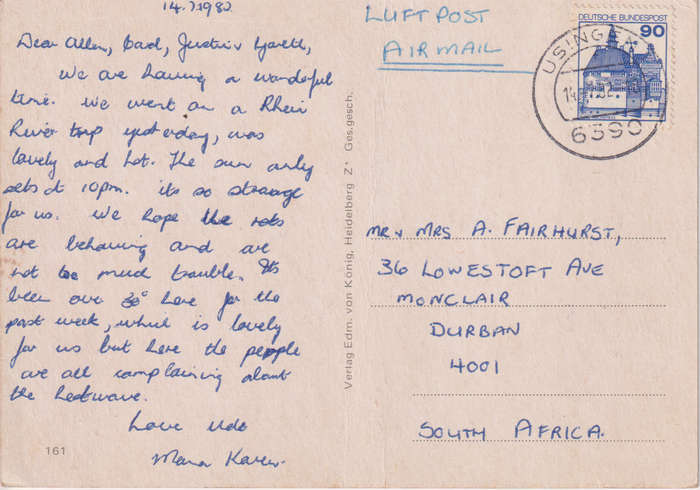 14.7.1982
Dear Allen, Carol, Justin & Gareth,
We are having a wonderful
time. We went on a Rhein
River trip yesterday, was
lovely and hot. The sun only
sets at 10pm. its so strange
for us. We hope the
are behaving and are
not be much trouble. Its
been over 30° here for the
past week, which is lovely
for us but here the people
are all complaining about
the heatwave.
Love Udo
Karen.
161
Verlag Edm. von König, Heidelberg Z' Ges.gesch.
LUFTPOST
AIR MAIL
DEUTSCHE BUNDESPOST
90
USINGEN
6390
MR & MRS A. FAIRHURST,
36 LOWESTOFT AVE
MONCLAIR
DURBAN
4001
SOUTH AFRICA.